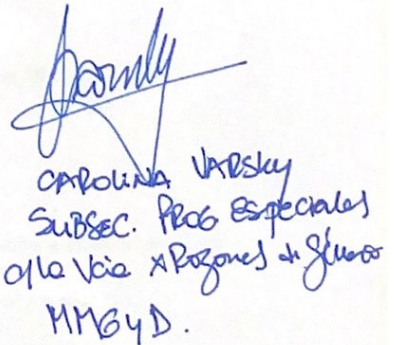 CAROLINA VARSKY
SUBSEC. PROG ESPECIALES
c/la Vcia x Razones de Género
MMGyD.